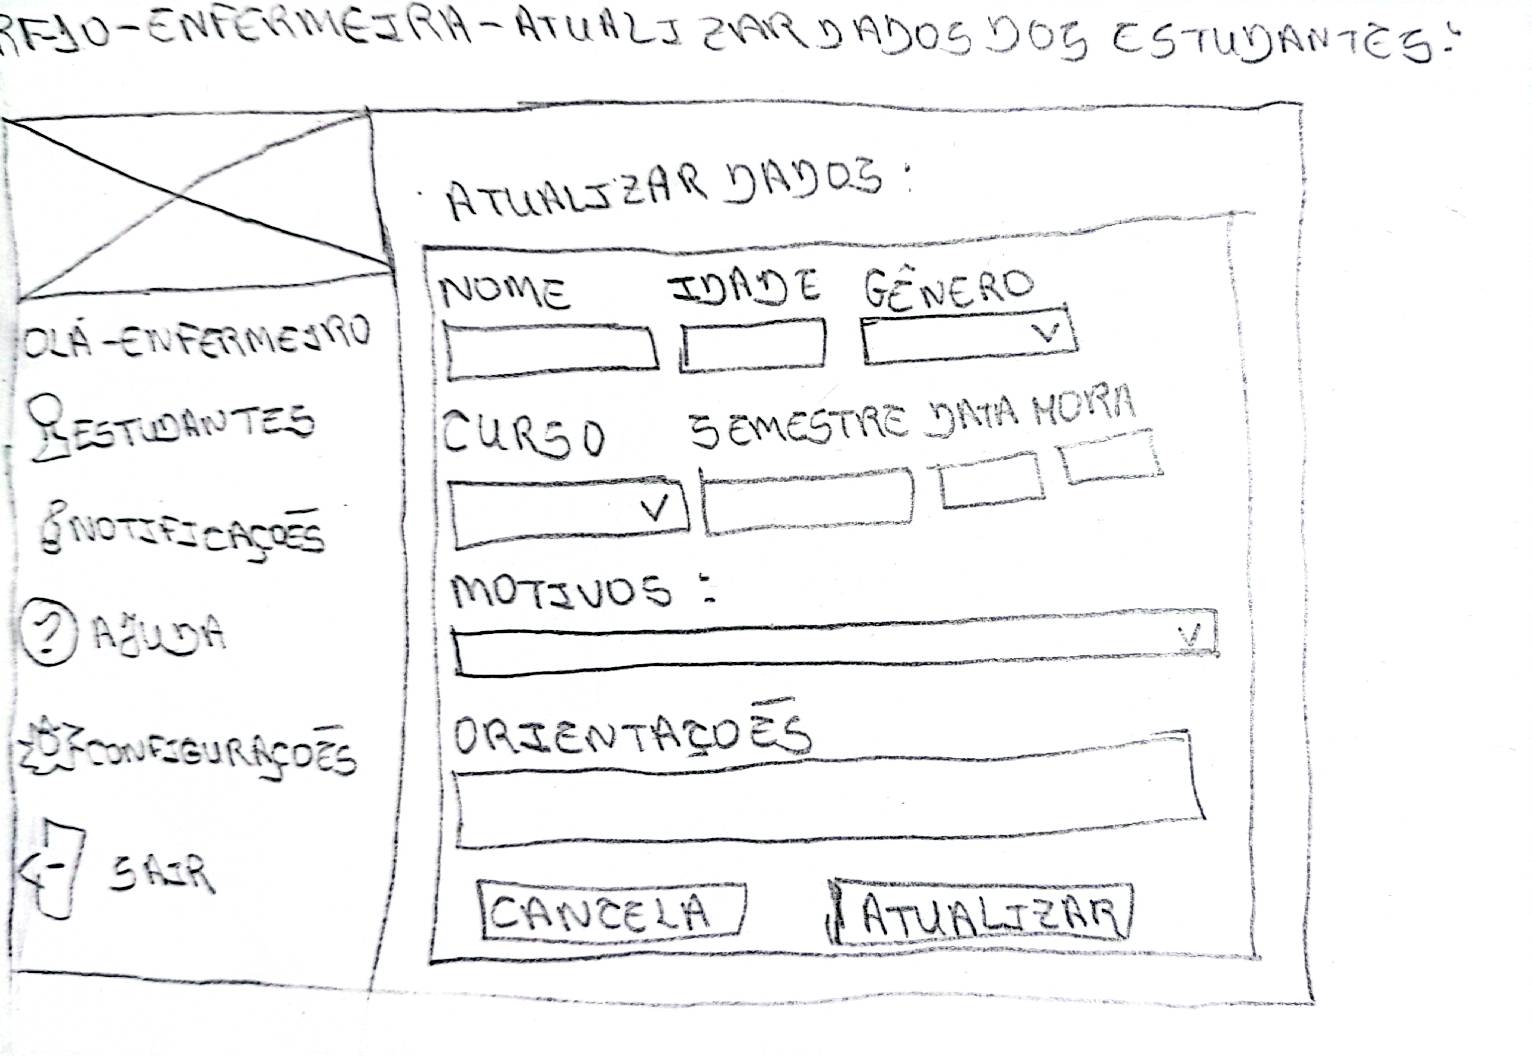 RF10-ENFERMEIRA-ATUALIZAR DADOS DOS ESTUDANTES:
ATUALIZAR DADOS:
OLÁ-ENFERMEIRO
ESTUDANTES
NOTIFICAÇOES
? AJUDA
CONFIGURAÇOES
SAIR
NOME IDADE GÊNERO
CURSO SEMESTRE DATA HORA
MOTIVOS:
ORIENTAÇOES
CANCELA ATUALIZAR